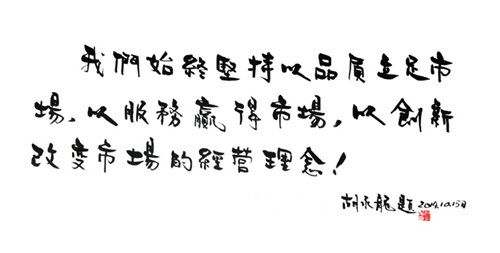 我們始終堅持以品質立足市
場、以服務贏得市場，以創新
改变市場的經營理念！
胡永龍題 2014.10.15日